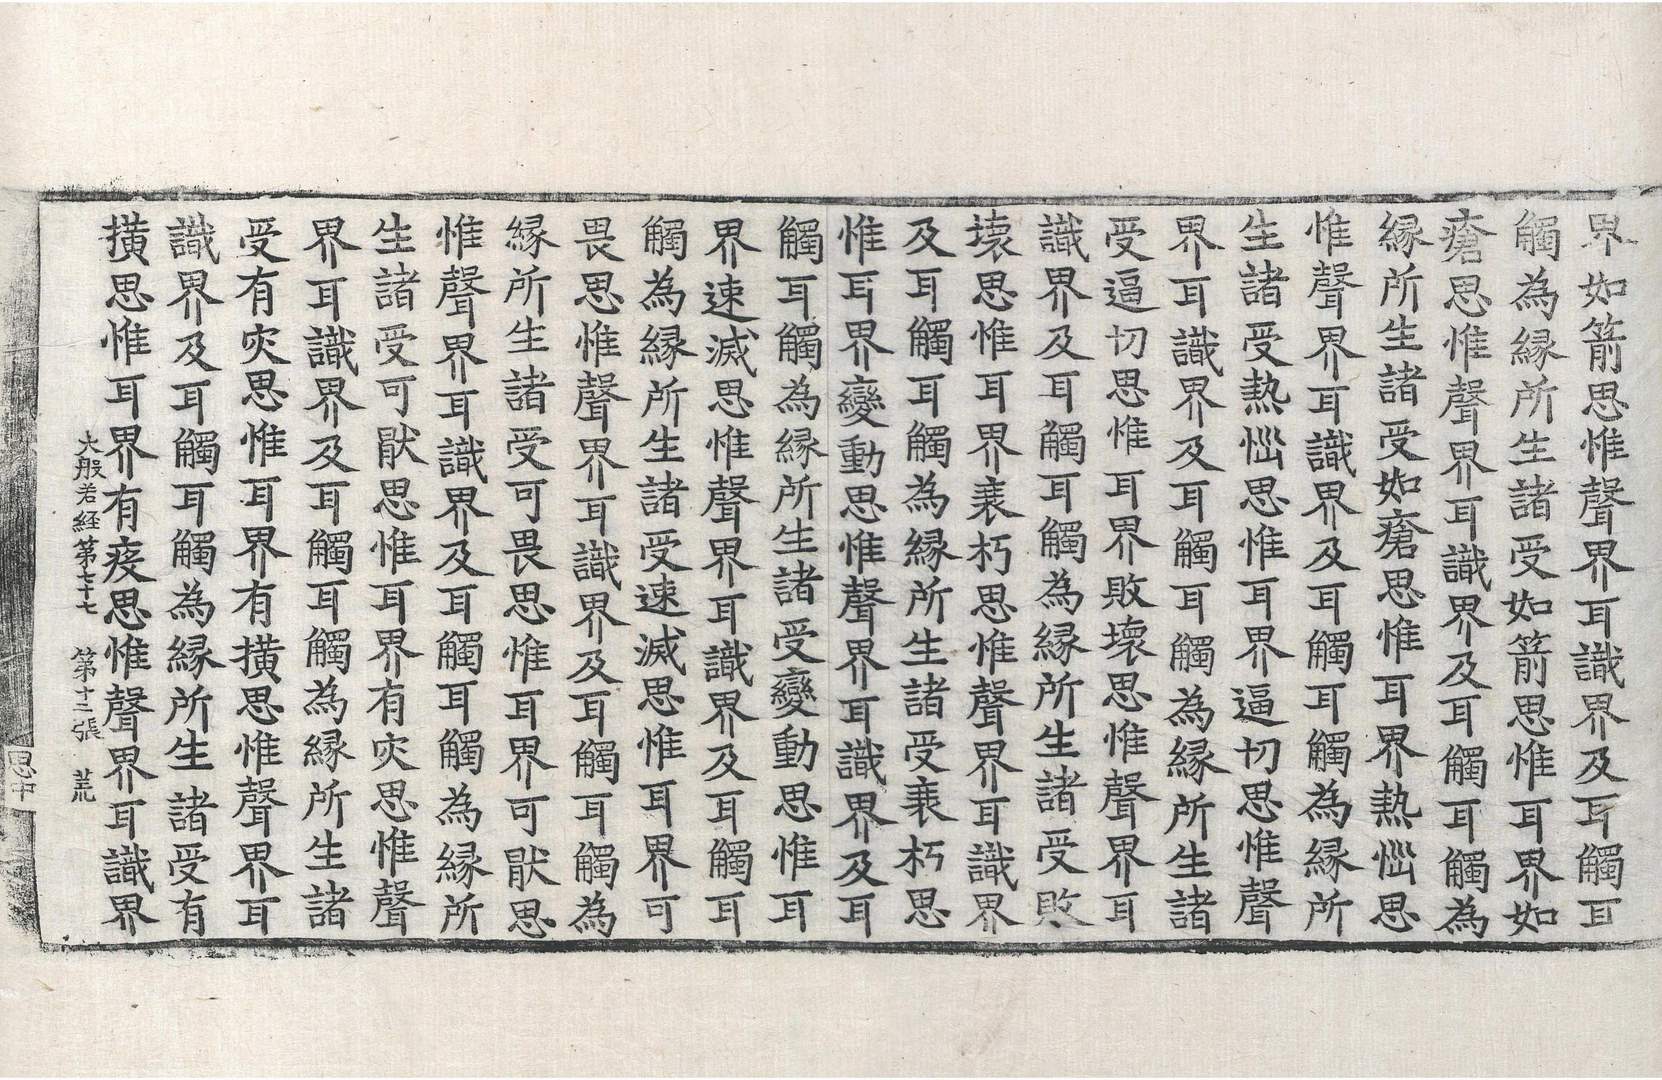 界如箭思惟聲界耳識界及耳觸耳
觸為縁所生諸受如箭思惟耳界如
瘡思惟聲界耳識界及耳觸耳觸為
縁所生諸受如瘡思惟耳界熱惱思
惟聲界耳識界及耳觸耳觸為縁所
生諸受熱惱思惟耳界逼切思惟聲
界耳識界及耳觸耳觸為縁所生諸
受逼切思惟耳界敗壞思惟聲界耳
識界及耳觸耳觸為縁所生諸受敗
壞思惟耳界衰朽思惟聲界耳識界
及耳觸耳觸為縁所生諸受衰朽思
惟耳界變動思惟聲界耳識界及耳
觸耳觸為縁所生諸受變動思惟耳
界速滅思惟聲界耳識界及耳觸耳
觸為縁所生諸受速滅思惟耳界可
畏思惟聲界耳識界及耳觸耳觸為
縁所生諸受可畏思惟耳界可猒思
惟聲界耳識界及耳觸耳觸為縁所
生諸受可猒思惟耳界有灾思惟聲
界耳識界及耳觸耳觸為縁所生諸
受有灾思惟耳界有撗思惟聲界耳
識界及耳觸耳觸為縁所生諸受有
撗思惟耳界有疫思惟聲界耳識界
大般若経第七十七 第十三張 荒
思中